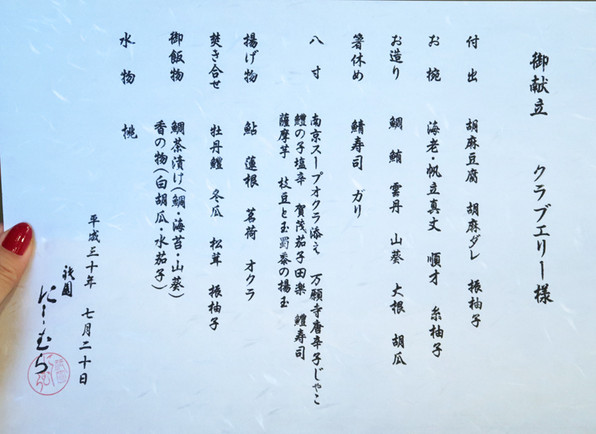 御献立　クラブエリー様
付出　胡麻豆腐　胡麻ダレ　振柚子
お椀　海老・帆立真丈　順才　糸柚子
お造り　鯛　鮪　雲丹　山葵　大根　胡瓜
箸休め　鯖寿司　ガリ
八寸　南京スープオクラ添え　万願寺唐辛子じゃこ
鱧の子塩辛　賀茂茄子田楽　鱧寿司
薩摩芋　枝豆と玉蜀黍の揚玉
揚げ物　鮎　蓮根　茗荷　オクラ
焚き合せ　牡丹鱧　冬瓜　松茸　振柚子
御飯物　鯛茶漬け(鯛・海苔・山葵)
香の物(白胡瓜・水茄子)
水物　桃
平成三十年　七月二十日
祇園
にしむら